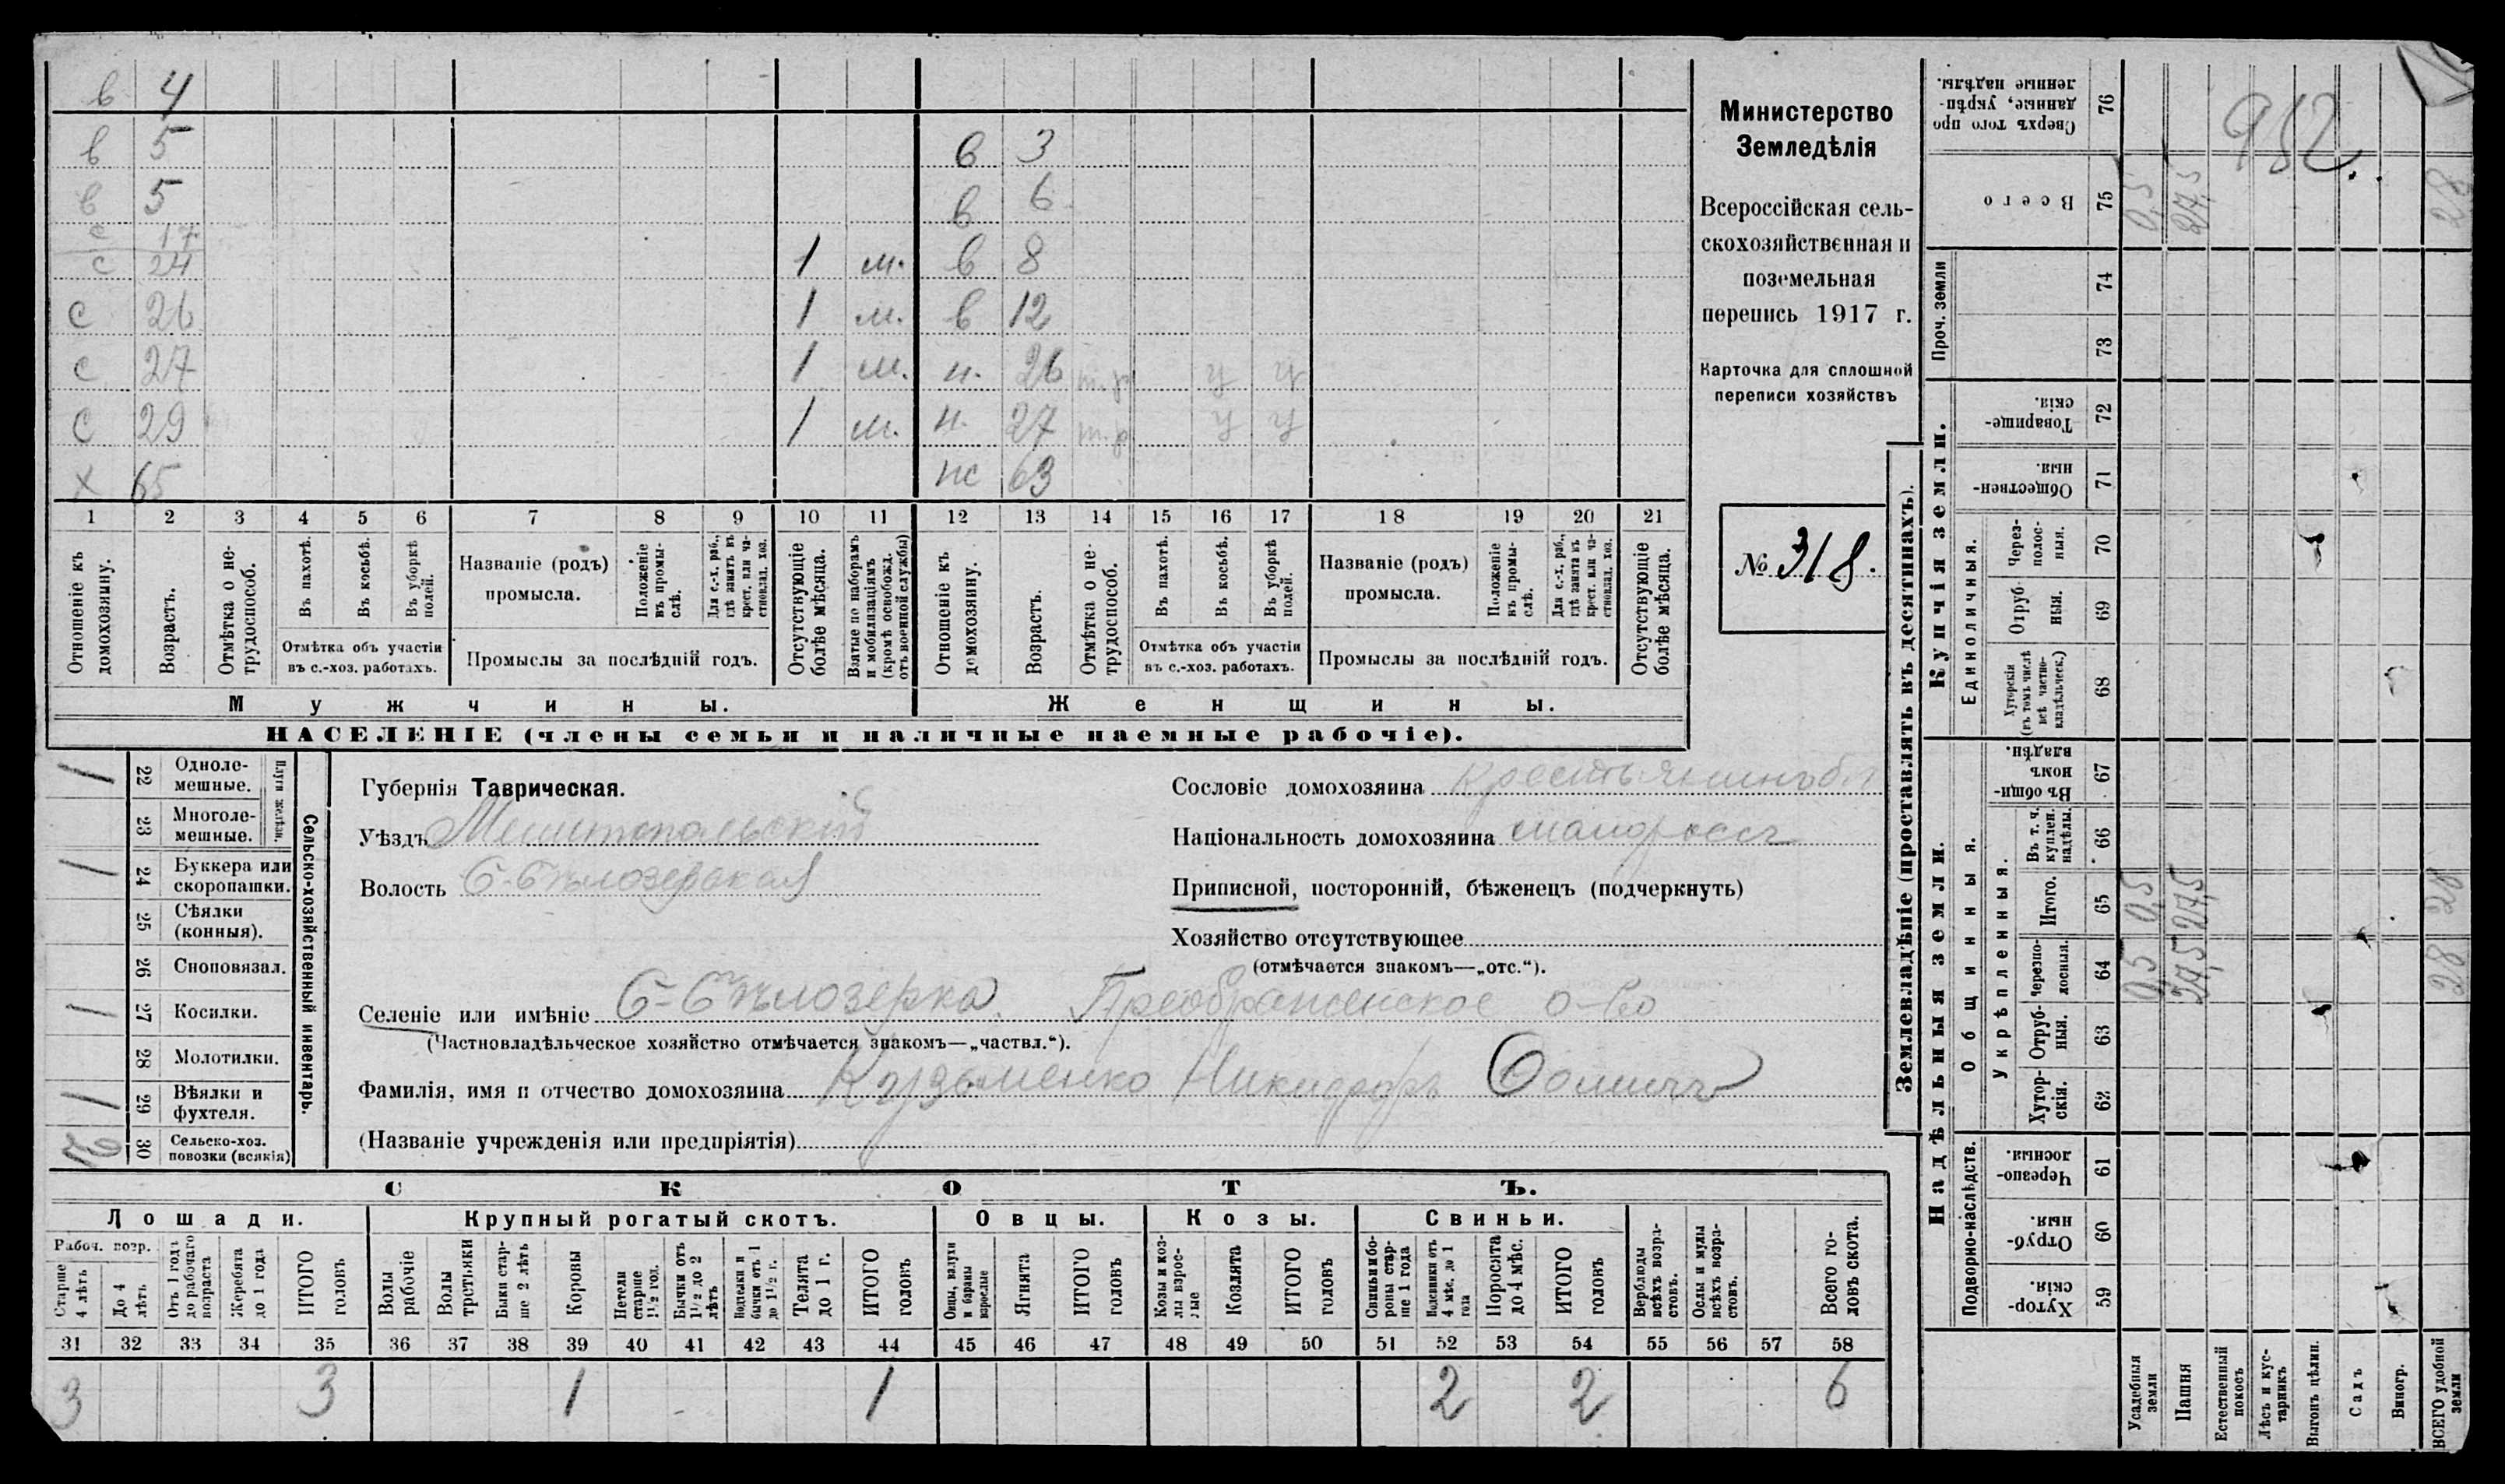 в 4
в 5 в 3
в 5 в 6
с 17
с 24 1 м. в 8
с 26 1 м. в 12
с 27 1 м. н. 26 т.р у у
с 29 1 м. н. 27 т.р у у
х 65 нс 63
1 2 3 4 5 6 7 8 9 10 11 12 13 14 15 16 17 18 19 20 21
Отношеніе къ домохозяину.
Возрастъ.
Отмѣтка о не-
трудоспособ.
Въ пахотѣ.
Въ косьбѣ.
Въ уборкѣ
полей.
Отмѣтка объ участіи
въ с.-хоз. работахъ.
Названіе (родъ)
промысла.
Положеніе
въ промы-
слѣ.
Для с.-х. раб.,
гдѣ занятъ въ
крест. или ча-
стновлад. хоз.
Промыслы за послѣдній годъ.
Отсутствующіе
болѣе мѣсяца.
Взятые по наборамъ
и мобилизаціямъ
(кромѣ освобожд.
отъ военной службы)
Отношеніе къ
домохозяину.
Возрастъ.
Отмѣтка о не-
трудоспособ.
Въ пахотѣ.
Въ косьбѣ.
Въ уборкѣ
полей.
Отмѣтка объ участіи
въ с.-хоз. работахъ.
Названіе (родъ)
промысла.
Положеніе
въ промы-
слѣ.
Для с.-х. раб.,
гдѣ занята въ
крест. или ча-
стновлад. хоз.
Промыслы за послѣдній годъ.
Отсутствующіе
болѣе мѣсяца.
Мужчины. Женщины.
НАСЕЛЕНІЕ (члены семьи и наличные наемные рабочіе).
Министерство
Земледѣлія
Всероссійская сель-
скохозяйственная и
поземельная
перепись 1917 г.
Карточка для сплошной
переписи хозяйствъ
№ 318.
Сельско-хозяйственный инвентарь.
Плуги желѣзн.
1 22 Одноле-
мешные.
23 Многоле-
мешные.
1 24 Буккера или
скоропашки.
25 Сѣялки
(конныя).
26 Сноповязал.
1 27 Косилки.
28 Молотилки.
1 29 Вѣялки и
фухтеля.
30 Сельско-хоз.
повозки (всякія)
Губернія Таврическая.
Уѣздъ Мелитопольскій
Волость Б-Бѣлозерская
Сословіе домохозяина крестьянинъ
Національность домохозяина малороссъ
Приписной, посторонній, бѣженецъ (подчеркнуть)
Хозяйство отсутствующее
(отмѣчается знакомъ—„отс.“).
Селеніе или имѣніе Б-Бѣлозерка. Преображенское о-во
(Частновладѣльческое хозяйство отмѣчается знакомъ—„частвл.“).
Фамилія, имя и отчество домохозяина Кузьменко Никифоръ Фомичъ
(Названіе учрежденія или предпріятія)
СКОТЪ.
Лошади. Крупный рогатый скотъ. Овцы. Козы. Свиньи.
Рабоч. возр.
Старше
4 лѣтъ
До 4
лѣтъ
Отъ 1 года
до рабочаго
возраста
Жеребята
до 1 года
ИТОГО
головъ
Волы
рабочіе
Волы
третьяки
Быки стар-
ше 2 лѣтъ
Коровы
Нетели
старше
1½ год.
Бычки отъ
1½ до 2
лѣтъ
Нетелки и
бычки отъ 1
до 1½ г.
Телята
до 1 г.
ИТОГО
головъ
Овцы, валухи
и бараны
взрослые
Ягнята
ИТОГО
головъ
Козы и коз-
лы взрос-
лые
Козлята
ИТОГО
головъ
Свиньи и бо-
ровы стар-
ше 1 года
Подсвинки отъ
4 мѣс. до 1
года
Поросята
до 4 мѣс.
ИТОГО
головъ
Верблюды
всѣхъ возра-
стовъ.
Ослы и мулы
всѣхъ возра-
стовъ.
Всего го-
ловъ скота.
31 32 33 34 35 36 37 38 39 40 41 42 43 44 45 46 47 48 49 50 51 52 53 54 55 56 57 58
3 3 1 1 2 2 6
Землевладѣніе (проставлять въ десятинахъ).
Надѣльныя земли.
Купчія земли.
Проч. земли
Сверхъ того про
данные, укрѣп-
ленные надѣлы.
76
952
Всего
75 0,5 27,5 28
74
73
Товарище-
скія.
72
Обществен-
ныя.
71
Единоличныя.
Через-
полос-
ныя.
70
Отруб
ныя.
69
Хуторскія
(въ томъ числѣ
всѣ частно-
владѣльческ.)
68
Общинныя.
Въ общин-
номъ
владѣн.
67
Укрѣпленныя.
Въ т. ч.
куплен.
надѣлы.
66
Итого.
65 0,5 27,5 28
Черезпо-
лосныя.
64 0,5 27,5 28
Отруб-
ныя.
63
Хутор-
скія.
62
Подворно-наслѣдств.
Черезпо-
лосныя.
61
Отруб-
ныя.
60
Хутор-
скія.
59
Усадебныя
земли
Пашня
Естественный
покосъ
Лѣсъ и кус-
тарникъ
Выгонъ цѣлин.
Садъ
Виногр.
ВСЕГО удобной
земли